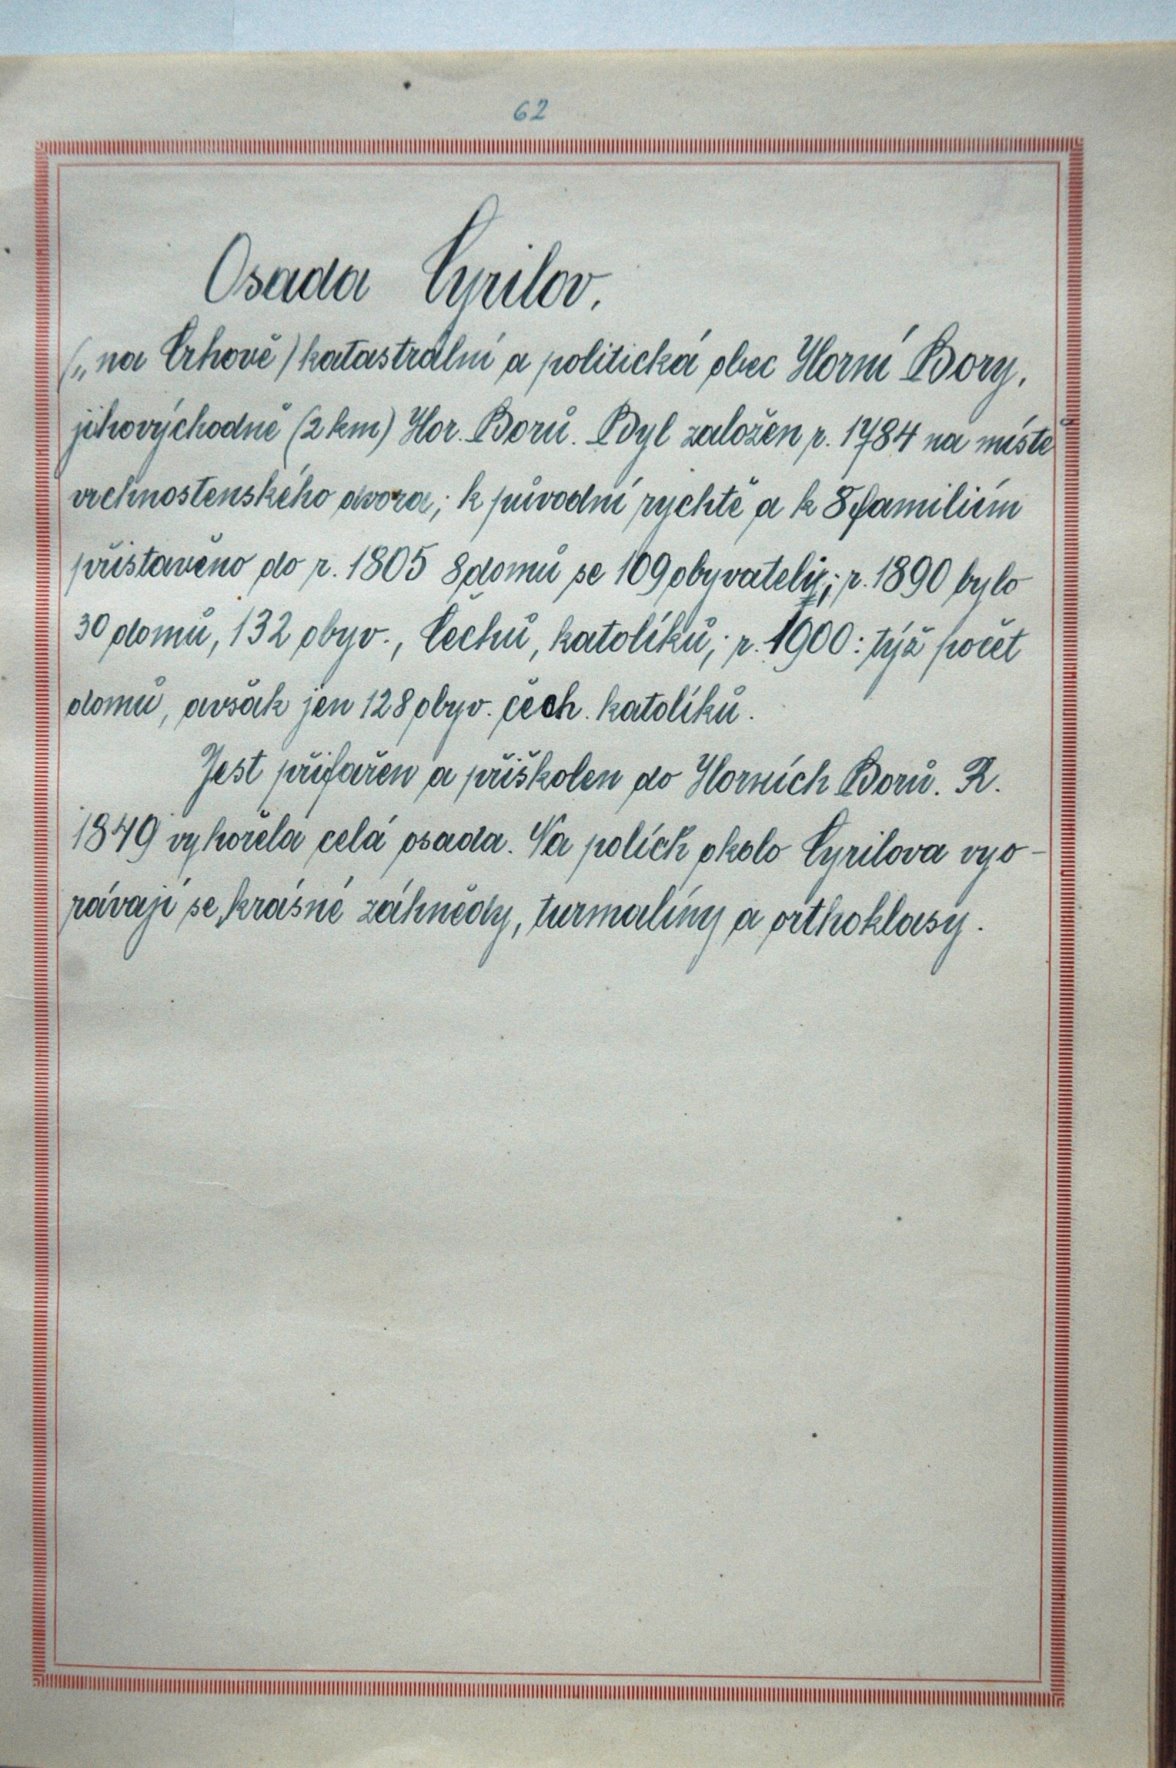 62
Osada Cyrilov.
(„na Crhově) katastrální a politická obec Horní Bory,
jihovýchodně (2 km) Hor. Borů. Byl založen r. 1784 na místě
vrchnostenského dvora; k původní rychtě a k 8 familiím
přistavěno do r. 1805 8 domů se 109 obyvateli; r. 1890 bylo
30 domů, 132 obyv., Čechů, katolíků; r. 1900: týž počet
domů, avšak jen 128 obyv. čech. katolíků.
Jest přifařen a přiškolen do Horních Borů. R.
1849 vyhořela celá osada. Na polích okolo Cyrilova vyo-
rávají se krásné záhnědy, turmalíny a orthoklasy.